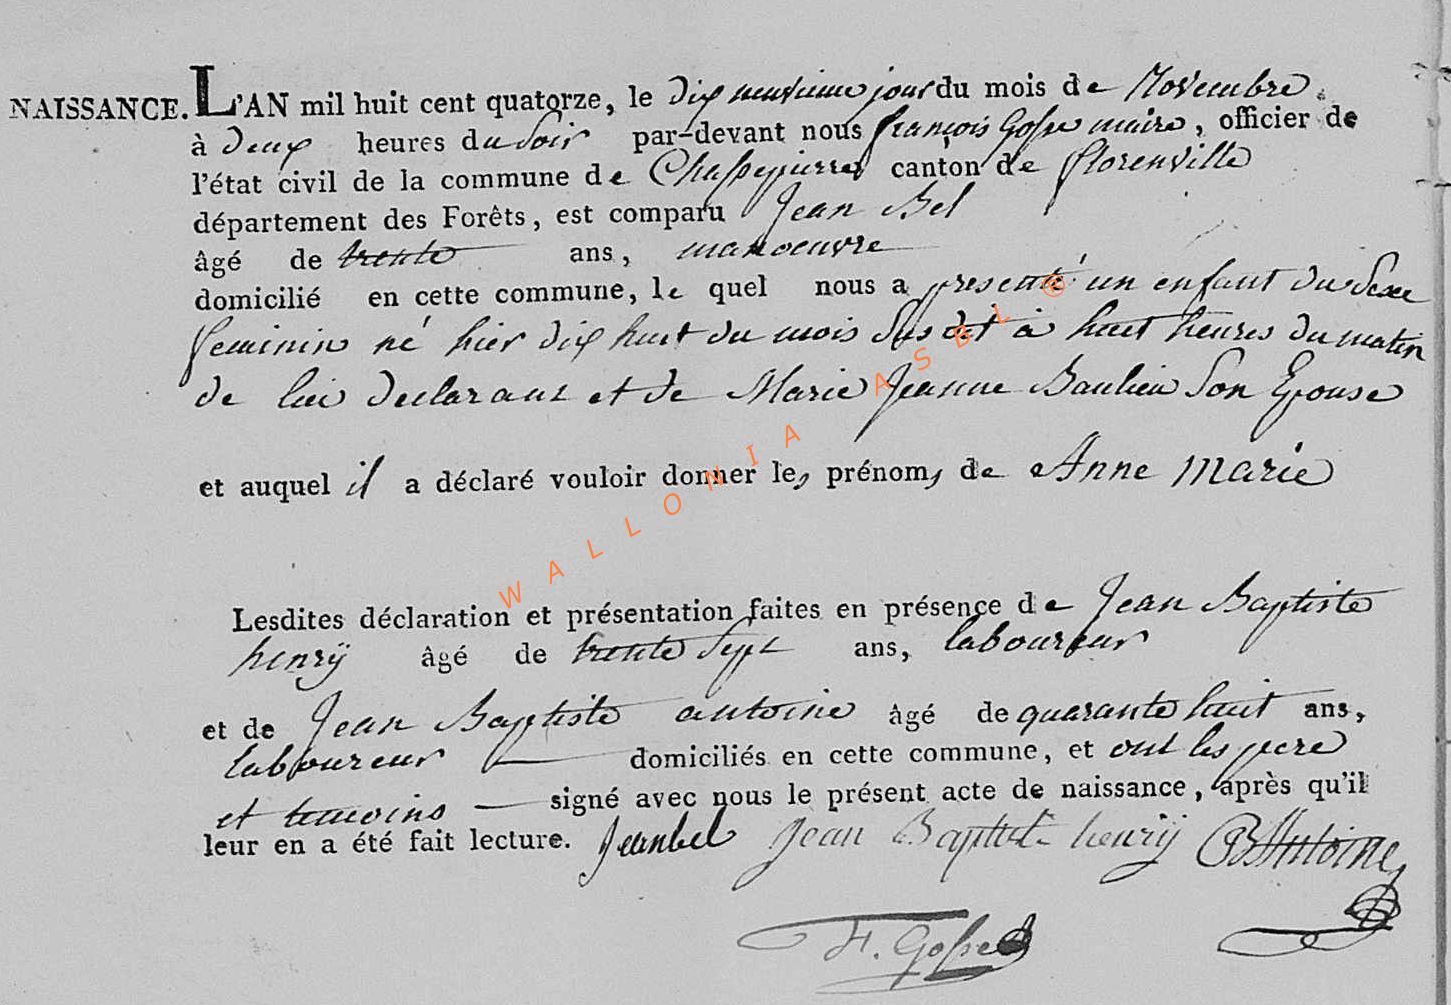 NAISSANCE. L'AN mil huit cent quatorze, le dix neuvieme jour du mois de Novembre
à deux heures du soir par-devant nous françois Gosse maire, officier de
l'état civil de la commune de Chassepierre canton de florenville
département des Forêts, est comparu Jean Bel
âgé de trente ans, manoeuvre
domicilié en cette commune, le quel nous a presenté un enfant du Sexe
feminin né hier dix huit du mois Sus dit à huit heures du matin
de lui declarant et de Marie Jeanne Baulieu Son Epouse
et auquel il a déclaré vouloir donner les prénoms de Anne Marie
Lesdites déclaration et présentation faites en présence de Jean Baptiste
henrÿ âgé de trente Sept ans, laboureur
et de Jean Baptiste antoine âgé de quarante huit ans,
laboureur domiciliés en cette commune, et ont les pere
et temoins signé avec nous le présent acte de naissance, après qu'il
leur en a été fait lecture. Jeanbel Jean Baptiste henrÿ JBAntoine
F. Gosse
WALLONIA ASBL ®